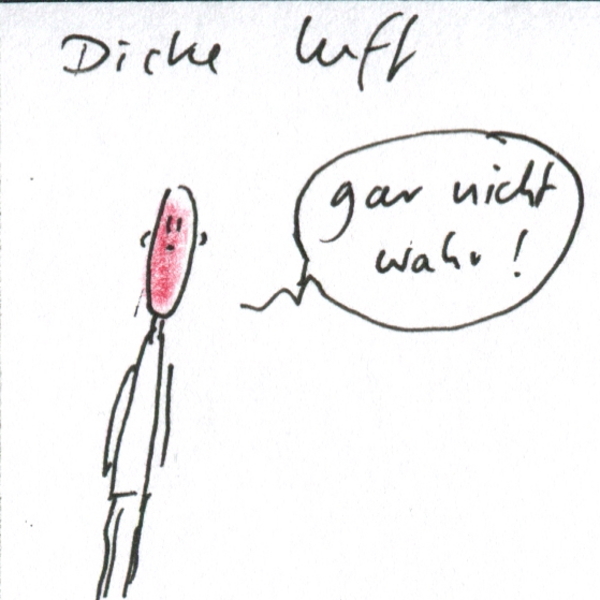 Dicke Luft
gar nicht
wahr!